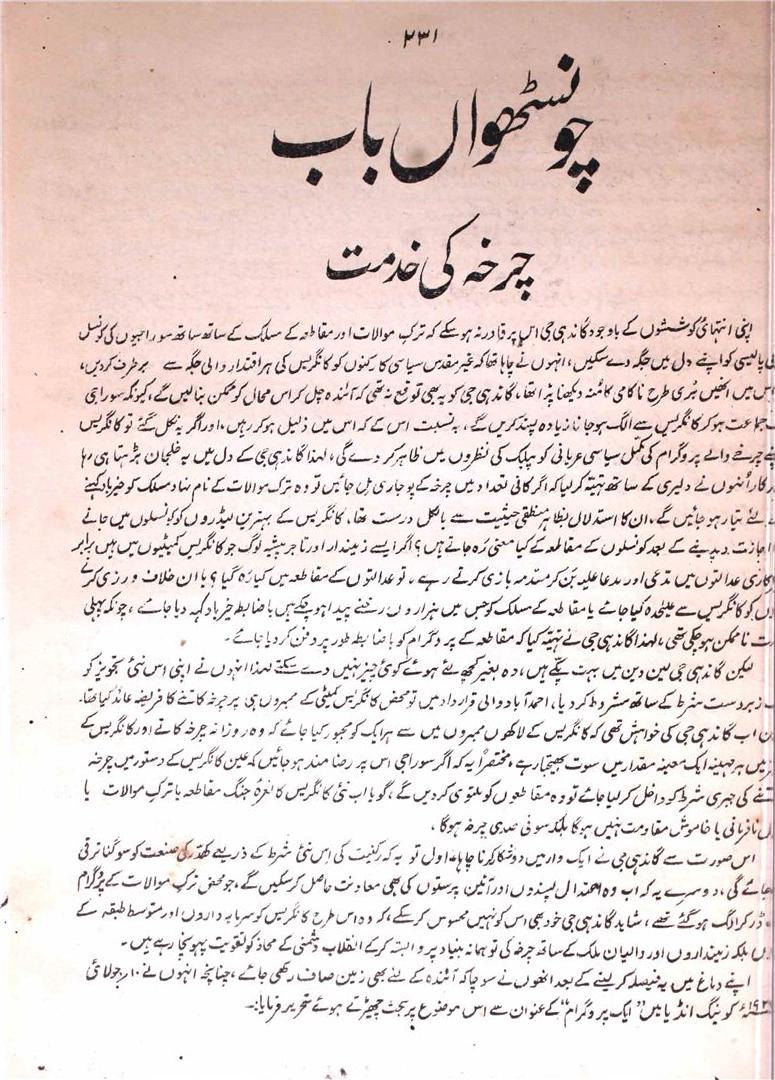 ۲۳۱
چونسٹھواں باب
چرخہ کی خدمت
اپنی انتہائی کوششوں کے باوجود گاندھی جی اس پر قادر نہ ہو سکے کہ ترک موالات اور مقاطعہ کے مسلک کے ساتھ ساتھ سوراجیوں کی کونسل
پالیسی کو اپنے دل میں جگہ دے سکیں، انہوں نے چاہا تھا کہ غیر مقدس سیاسی کارکنوں کو کانگریس کی ہر اقتدار والی جگہ سے برطرف کردیں،
اس میں انھیں بُری طرح ناکامی کا مُنہ دیکھنا پڑا تھا، گاندھی جی کو یہ بھی توقع نہ تھی کہ آئندہ چل کر اس محال کو ممکن بنالیں گے، کیونکہ سوراجی
جماعت ہو کر کانگریس سے الگ ہو جانا زیادہ پسند کریں گے، بہ نسبت اس کے کہ اس میں ذلیل ہو کر رہیں، اور اگر یہ نکل گئے تو کانگریس
چرخے والے پروگرام کی مکمل سیاسی عریانی کو پبلک کی نظروں میں ظاہر کر دے گی، لہٰذا گاندھی جی کے دل میں یہ خلجان بڑھتا ہی رہا
اُنہوں نے دلیری کے ساتھ تہیّہ کر لیا کہ اگر کافی تعداد میں چرخہ کے پوجاری مل جائیں تو وہ ترک موالات کے نام نہاد مسلک کو خیرباد کہنے
لئے تیار ہو جائیں گے، ان کا استدلال بظاہر منطقی حیثیت سے بالکل درست تھا، کانگریس کے بہترین لیڈروں کو کونسلوں میں جانے
اجازت دیدینے کے بعد کونسلوں کے مقاطعہ کے کیا معنی رہ جاتے ہیں؟ اگر ایسے زمیندار اور تاجر پیشہ لوگ جو کانگریس کمیٹیوں میں ہیں برابر
عدالتوں میں مدعی اور مدعا علیہ بن کر مقدمہ بازی کرتے رہے، تو عدالتوں کے مقاطعہ میں کیا رہ گیا؟ یا ان خلاف ورزی کرنے
کو کانگریس سے علیحدہ کیا جائے یا مقاطعہ کے مسلک کو جس میں ہزاروں رخنے پیدا ہو چکے ہیں باضابطہ خیرباد کہہ دیا جائے، چونکہ پہلی
ناممکن ہو چکی تھی، لہٰذا گاندھی جی نے تہیّہ کیا کہ مقاطعہ کے پروگرام کو باضابطہ طور پر دفن کر دیا جائے۔
لیکن گاندھی جی لین دین میں بہت پکّے ہیں، وہ بغیر کچھ لئے ہوئے کوئی چیز نہیں دے سکتے لہٰذا انہوں نے اپنی اس نئی تجویز کو
زبردست شرط کے ساتھ مشروط کر دیا، احمدآباد والی قرارداد میں تو محض کانگریس کمیٹی کے ممبروں ہی پر چرخہ کاتنے کا فریضہ عائد کیا تھا۔
اب گاندھی جی کی خواہش تھی کہ کانگریس کے لاکھوں ممبروں میں سے ہر ایک کو مجبور کیا جائے کہ وہ روزانہ چرخہ کاتے اور کانگریس کے
میں ہر مہینہ ایک معینہ مقدار میں سوت بھیجتا رہے، مختصراً یہ کہ اگر سوراجی اس پر رضا مند ہو جائیں کہ عین کانگریس کے دستور میں چرخہ
کی جبری شرط کو داخل کر لیا جائے تو وہ مقاطعوں کو ملتوی کر دیں گے، گویا اب نئی کانگریس کا نعرۂ جنگ مقاطعہ یا ترک موالات یا
نافرمانی یا خاموش مقاومت نہیں ہوگا بلکہ سو فی صدی چرخہ ہوگا،
اس صورت سے گاندھی جی نے ایک وار میں دو شکار کرنا چاہا۔ اول تو یہ کہ رکنیت کی اس نئی شرط کے ذریعے کھدّر کی صنعت کو سوگنا ترقی
جائے گی، دوسرے یہ کہ اب وہ اعتدال پسندوں اور آئین پرستوں کی بھی معاونت حاصل کر سکیں گے، جو محض ترک موالات کے پروگرام
ڈر کر الگ ہو گئے تھے، شاید گاندھی جی خود بھی اس کو نہیں محسوس کر سکے، کہ وہ اس طرح کانگریس کو سرمایہ داروں اور متوسط طبقہ کے
بلکہ زمینداروں اور والیان ملک کے ساتھ چرخہ کی توہمانہ بنیاد پر وابستہ کر کے انقلاب دشمنی کے محاذ کو تقویت پہونچا رہے ہیں۔
اپنے دماغ میں یہ فیصلہ کر لینے کے بعد انھوں نے سوچا کہ آئندہ کے لئے بھی زمین صاف رکھی جائے، چنانچہ انہوں نے ۱۰ جولائی
کو ینگ انڈیا میں "ایک پروگرام" کے عنوان سے اس موضوع پر بحث چھیڑتے ہوئے تحریر فرمایا:۔